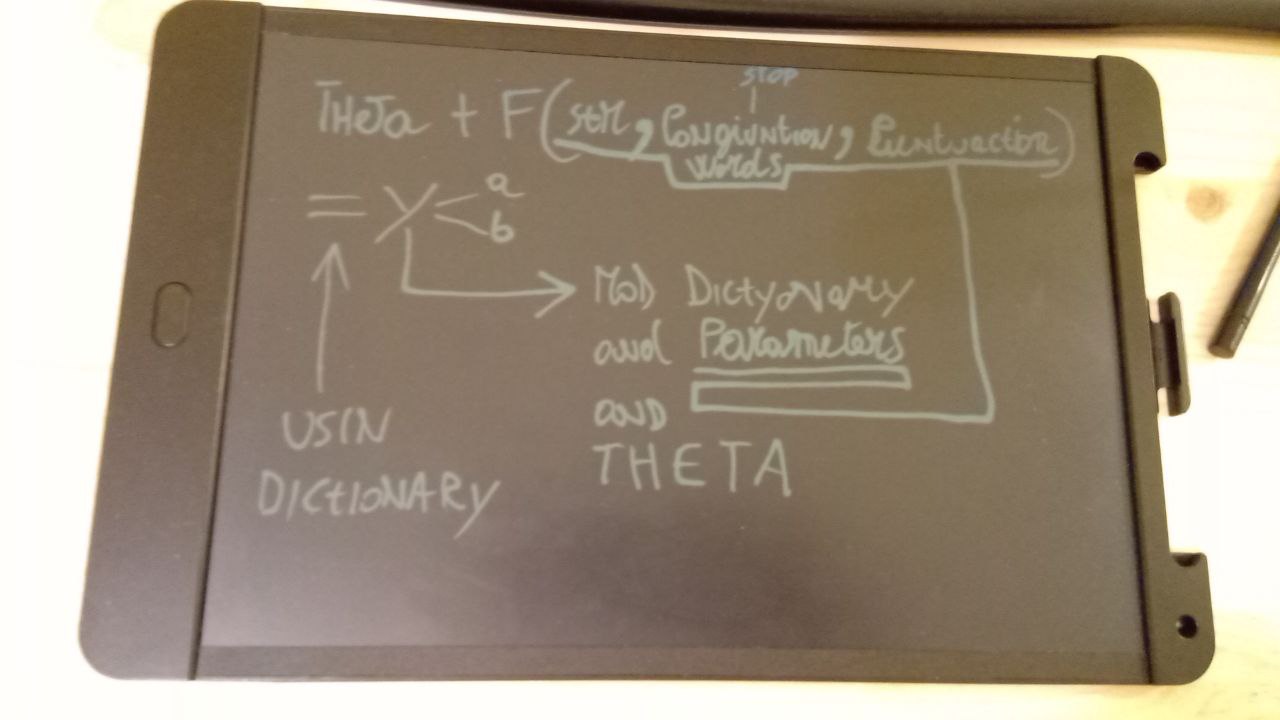 STOP
THeTa + F(StR, Congiuntion, Puntuaction)
words
= Y < a
b
MOD Dictyonary
and Parameters
and
THETA
USIN
DICTIONARY